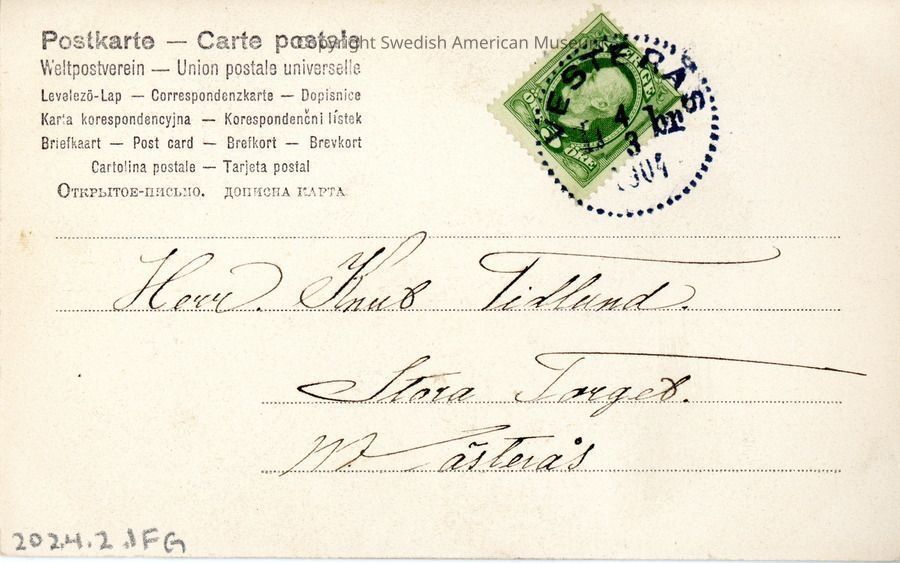 Postkarte — Carte postale
Copyright Swedish American Museum
Weltpostverein — Union postale universelle
Levelezō-Lap — Correspondenzkarte — Dopisnice
Karta korespondencyjna — Korespondenční lístek
Briefkaart — Post card — Brefkort — Brevkort
Cartolina postale — Tarjeta postal
Открытое-письмо. дописна карта
VESTERÅS
4
3 br
1904
ÖRE
Herr. Knut Tidlund.
Stora Torget.
Västerås
2024.2.1FG